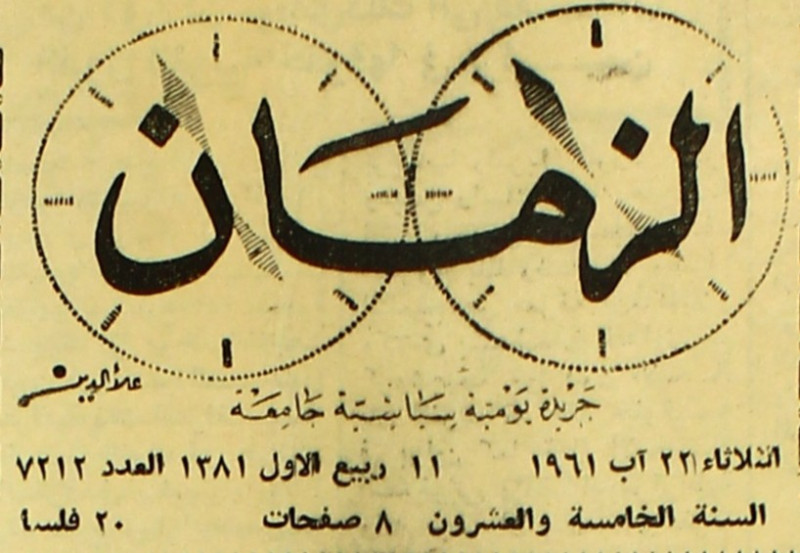 الزمان
علاء الدين
جريدة يومية سياسية جامعة
الثلاثاء ٢٢ آب ١٩٦١ ١١ ربيع الاول ١٣٨١ العدد ٧٢١٢
السنة الخامسة والعشرون ٨ صفحات ٢٠ فلسا